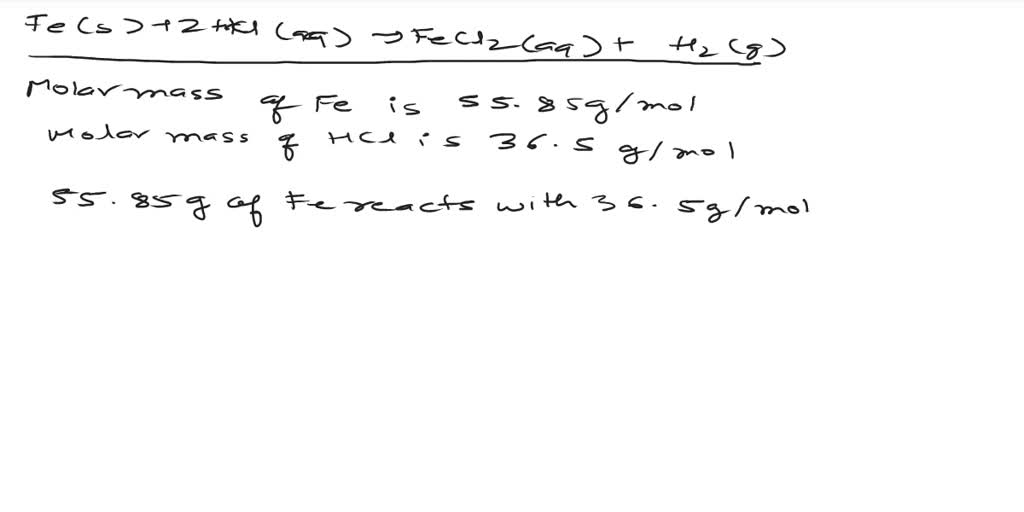 Fe(s) + 2 HCl (aq) → FeCl2 (aq) + H2 (g)
Molar mass of Fe is 55.85g/mol
Molar mass of HCl is 36.5 g/mol
55.85g of Fe reacts with 36.5g/mol